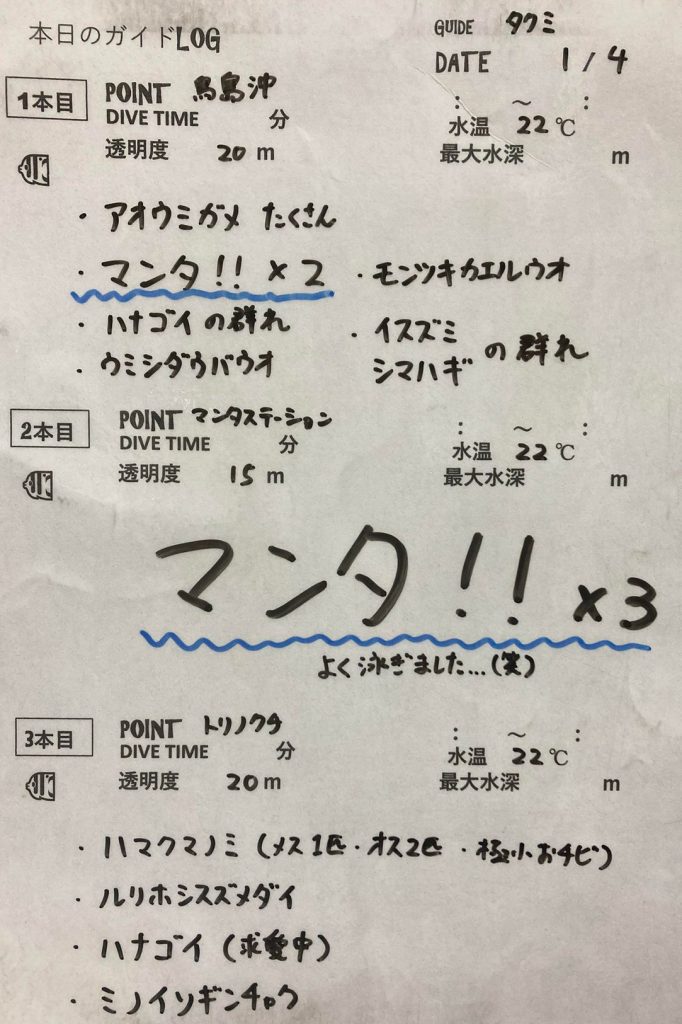 本日のガイドLOG
GUIDE タクミ
DATE 1/4
1本目 POINT 鳥島沖
DIVE TIME 分 : ～ :
透明度 20 m 水温 22℃
最大水深 m
・アオウミガメ たくさん
・マンタ!! ×2
・モンツキカエルウオ
・ハナゴイの群れ
・イスズミ シマハギ の群れ
・ウミシダウバウオ
2本目 POINT マンタステーション
DIVE TIME 分 : ～ :
透明度 15 m 水温 22℃
最大水深 m
マンタ!! ×3
よく泳ぎました...(笑)
3本目 POINT トリノクチ
DIVE TIME 分 : ～ :
透明度 20 m 水温 22℃
最大水深 m
・ハマクマノミ (メス1匹・オス2匹・極小おチビ)
・ルリホシスズメダイ
・ハナゴイ (求愛中)
・ミノイソギンチャク